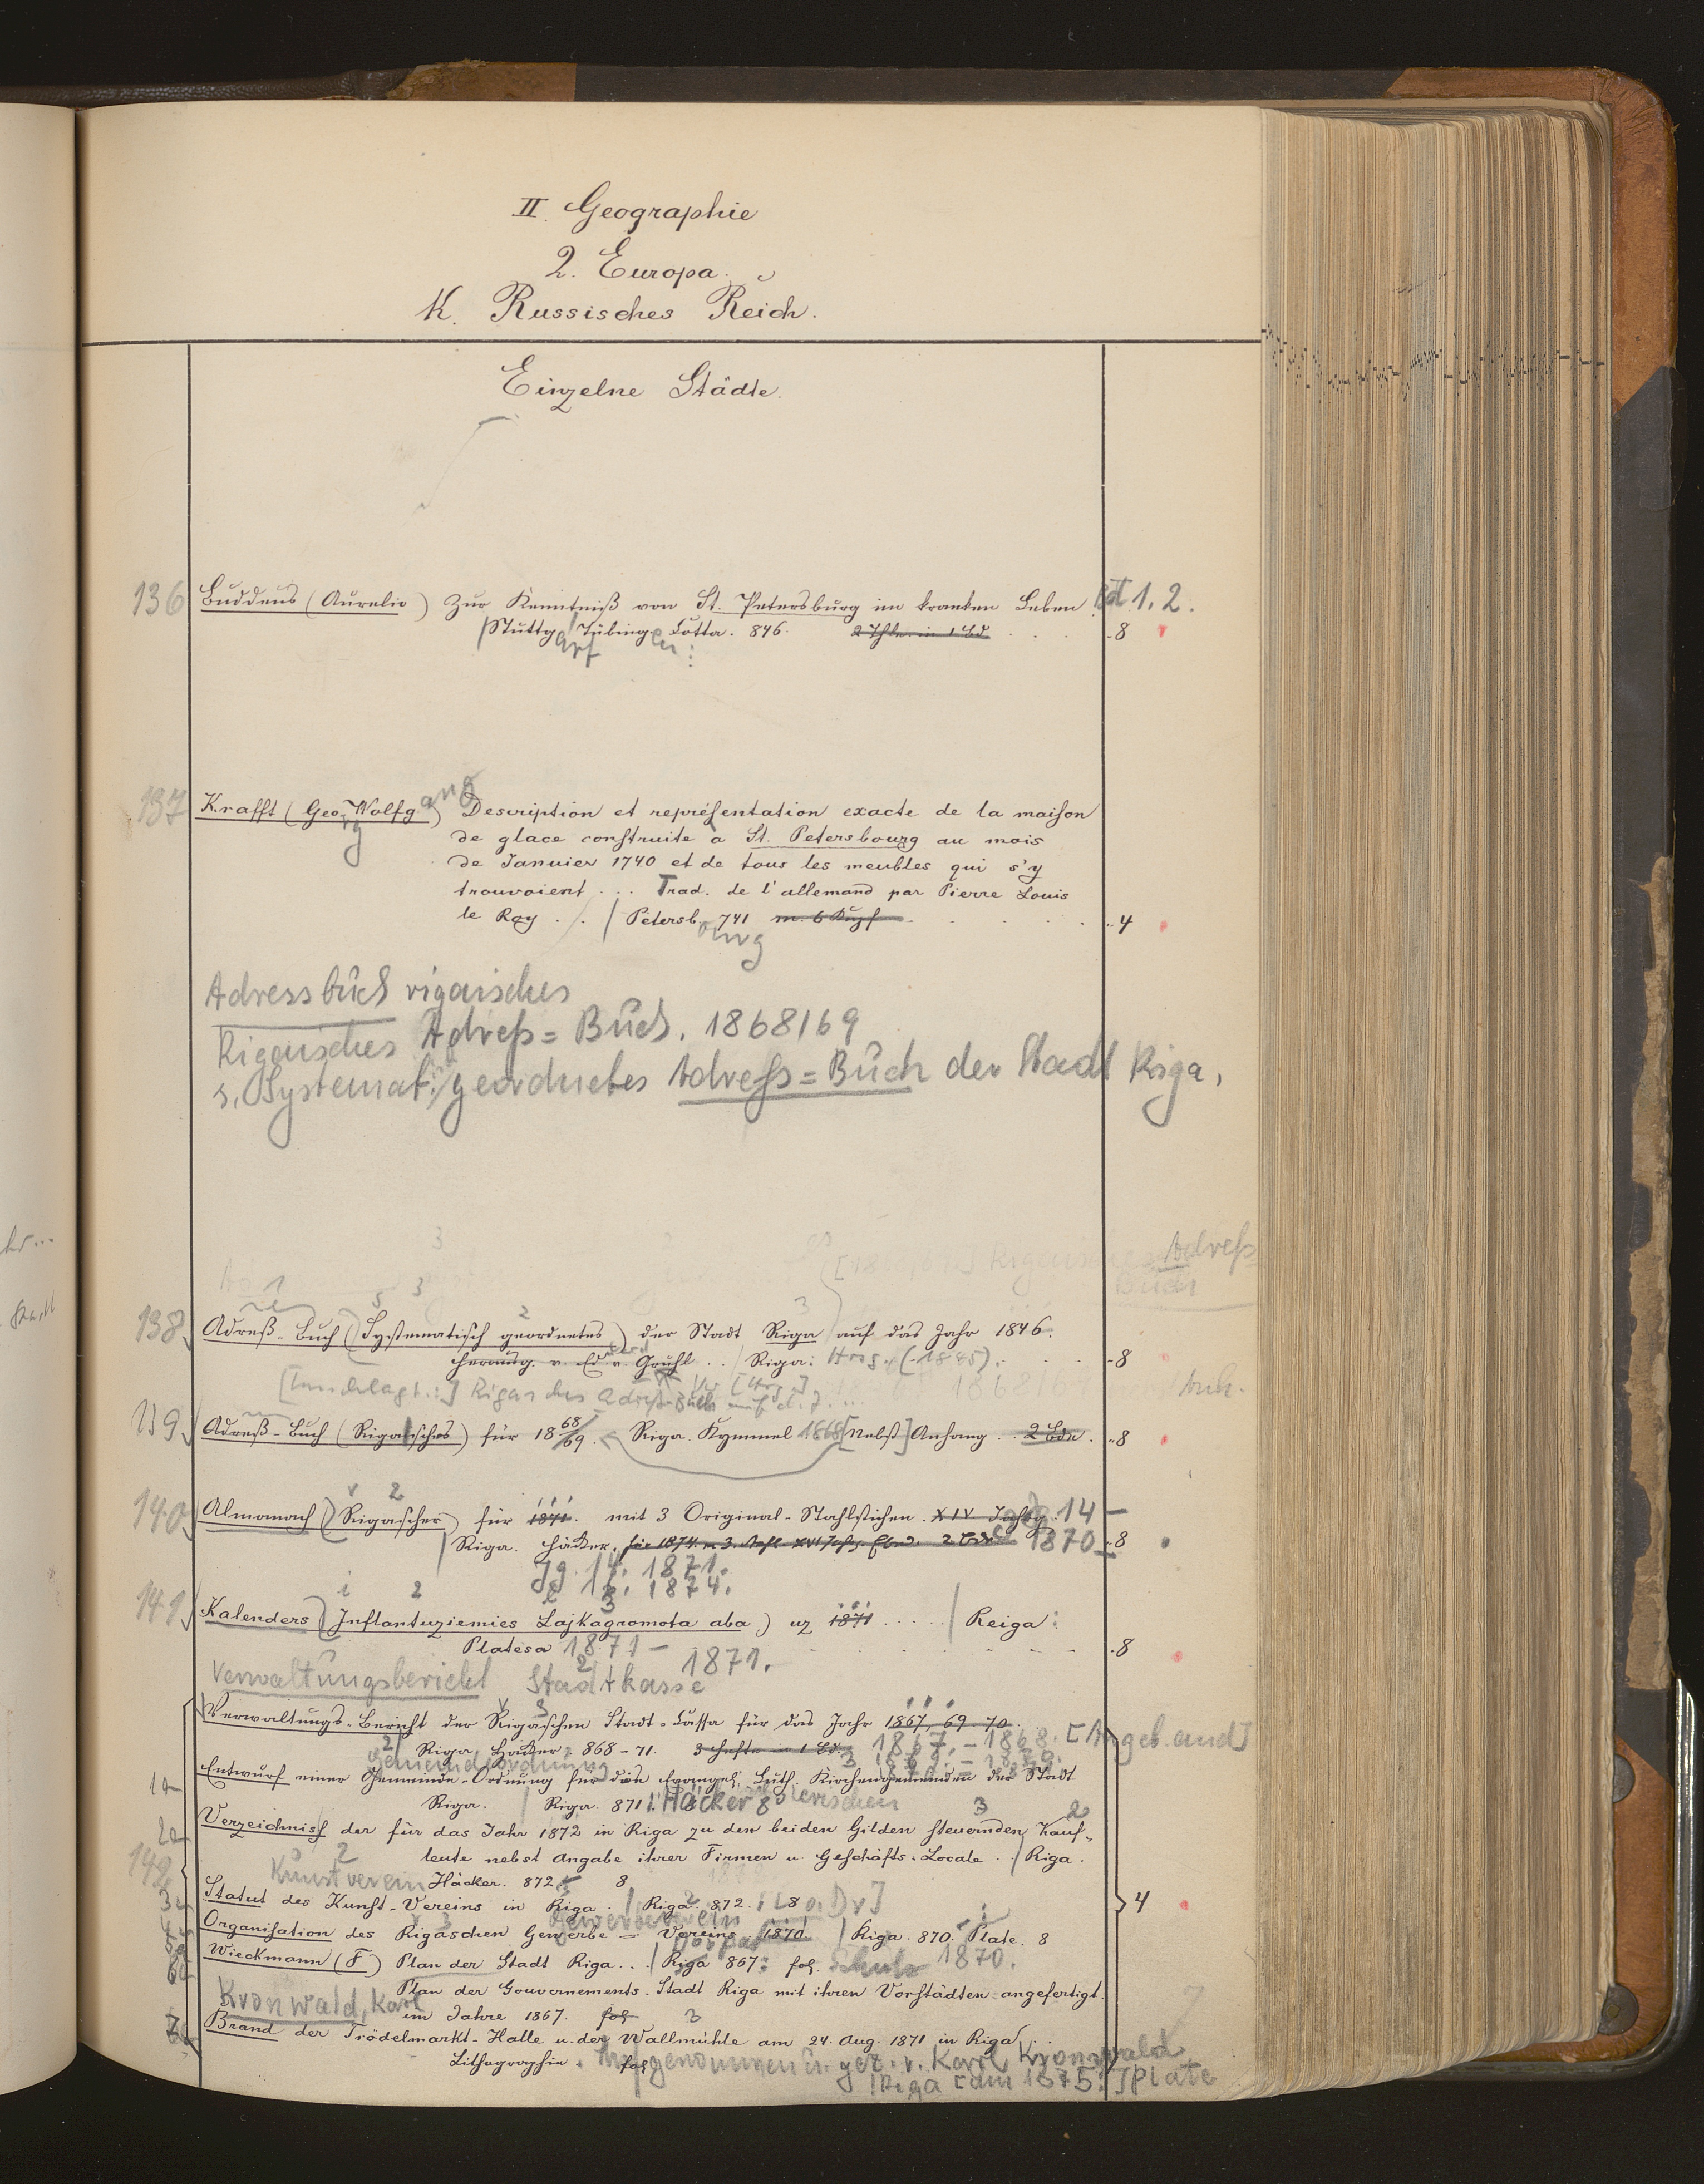 II. Geographie
2. Europa.
K. Russisches Reich.
Einzelne Städte.
136 Buddeus (Aurelio) Zur Kenntniß von St. Petersburg im kranken Leben Bd 1. 2.
Stuttgart Tübingen: Cotta. 846. 2 Thle. in 1 Bd. 8
137 Krafft (Georg Wolfgang) Description et repréſentation exacte de la maiſon
de glace conſtruite à St. Petersbourg au mois
de Januier 1740 et de tous les meubles qui s'y
trouvoient ... Trad. de l'allemand par Pierre Louis
le Roy . . / Petersbourg 741 m. 6 Kupf 4
Adressbuch rigaisches
Rigaisches Adreß=Buch. 1868/69
s. Systemat. geordnetes Adreß=Buch der Stadt Riga,
Adreß
Buch
138 Adreß-Buch (Systematisch geordnetes) der Stadt Riga auf das Jahr 1846.
herausg. v. Ed. v. Gruhl . . / Riga: (1845). 8
[Umschlagt.:] Rigasches Adreß-Buch auf d. J. ...
139 Adreß-Buch (Rigaisches) für 1868/69. Riga. Kymmel 1868 [Nebst] Anhang . . 2 Bde. 8
140 Almanach (Rigascher) für 1871. mit 3 Original-Stahlstichen. XIV Jahrg. 14 –
Riga. Häcker. für 1874. m. 3. Stahl. XVI Jahrg. Ebnd. 2 Bde 1870 – 8
Jg. 14. 1871.
1874.
141 Kalenders (Inflantuziemies Lajkagromota aba) uz 1871 ..... / Reiga:
Platesa 1871 – 8
Verwaltungsbericht Stadtkasse 1871.
Verwaltungs-Bericht der Rigaschen Stadt-Cassa für das Jahr 1867, 69-70.
Riga, Häcker, 868-71. 3 Hefte in 1 Bd. 1867. – 1868. [Angeb. and]
Gemeindeordnung 3 1869. – 1870.
1a Entwurf einer Gemeinde-Ordnung für die Evangel. Luth. Kirchengemeinden der Stadt
Riga. / Riga. 871. Häcker 8
2a Verzeichniſſ der für das Jahr 1872 in Riga zu den beiden Gilden ſteuernden Kauf-
leute nebst Angabe ihrer Firmen u. Geſchäfts-Locale . . / Riga.
142 Kunstverein Häcker. 872 8
3a Statut des Kunſt-Vereins in Riga . / Riga. 872. 8 [o. Dr] 4
Gewerbeverein
Organiſation des Rigaschen Gewerbe = Vereins. 1870. / Riga. 870. Plate. 8
Wieckmann (F) Plan der Stadt Riga . . / Riga 867: fol. 1870.
6a Plan der Gouvernements-Stadt Riga mit ihren Vorſtädten angefertigt.
Kronwald, Karl im Jahre 1867. fol
Brand der Trödelmarkt-Halle u. der Wallmühle am 24. Aug. 1871 in Riga . .
Lithographie. fol Aufgenommen u. gez. v. Karl Kronwald
Riga [um 1875:] Plate